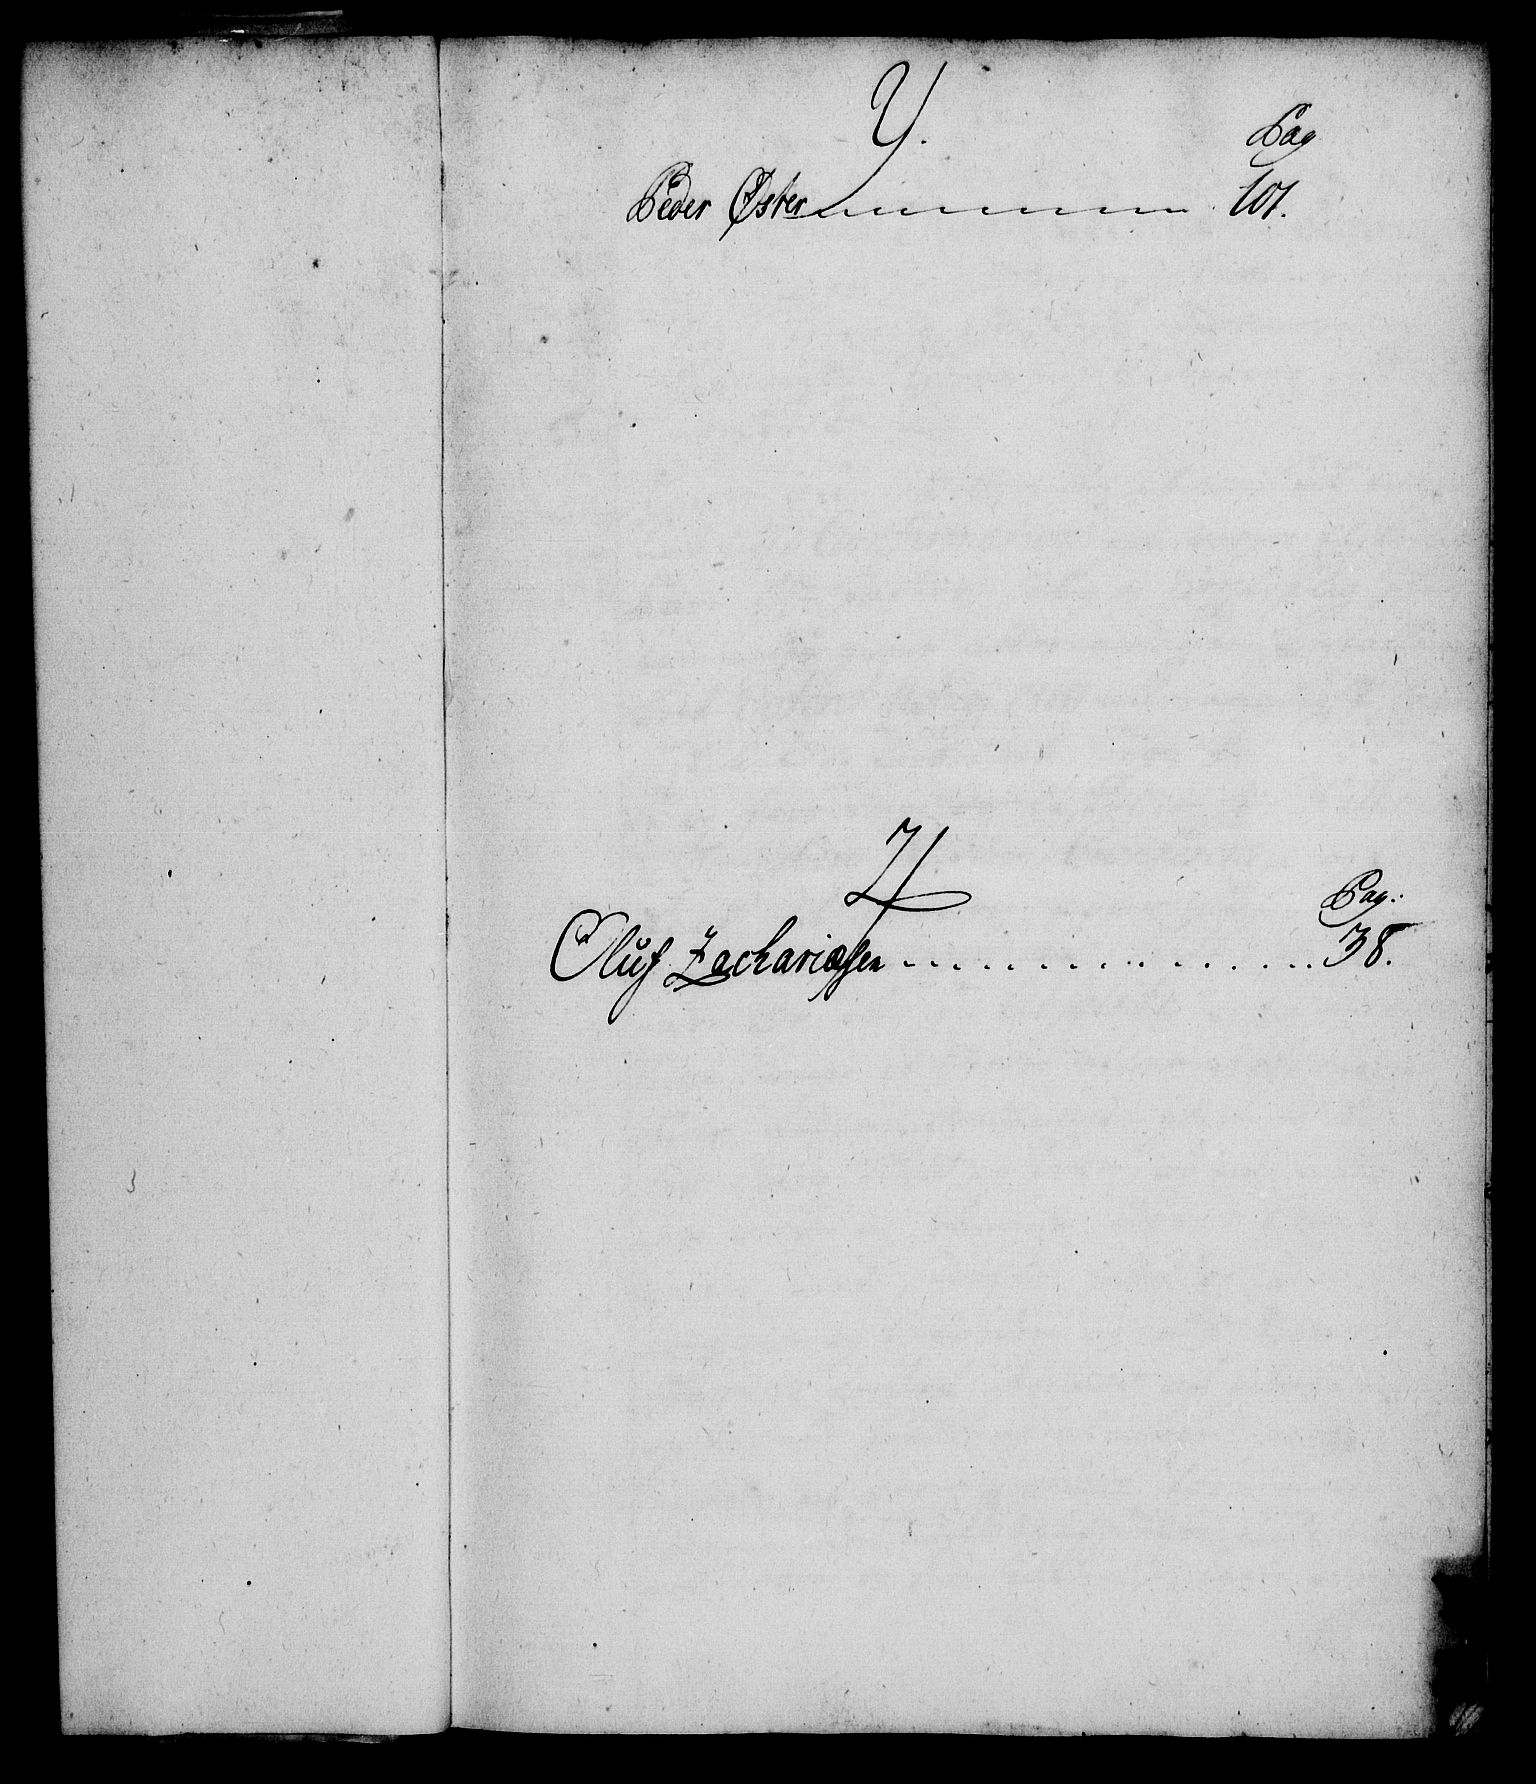 Y.
Pag
Peder Øster 101.
Z
Pag:
Oluf Zachariasen 38.